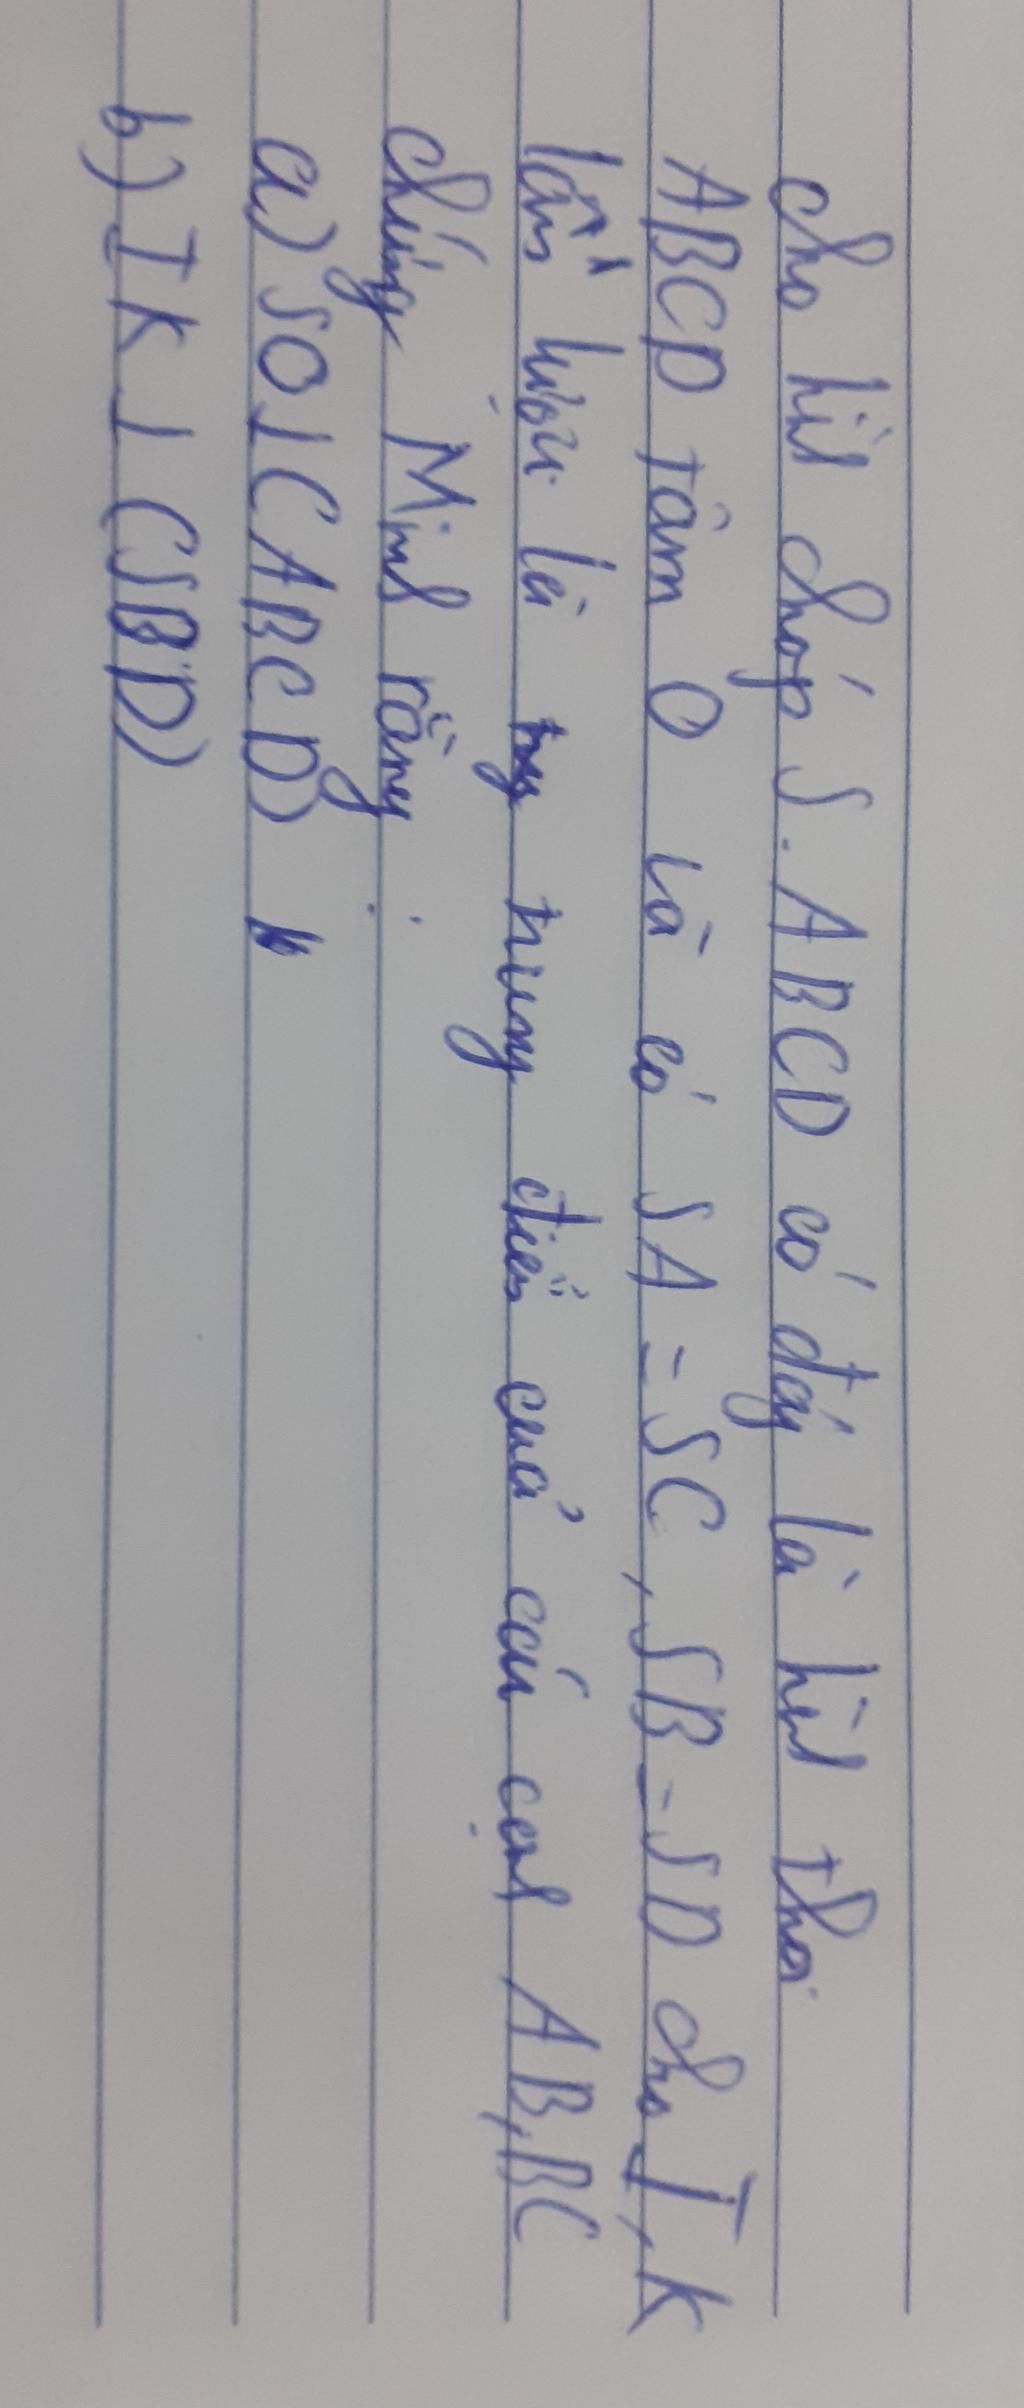 cho hình chóp S.ABCD có đáy là hình thoi
ABCD tâm O và có SA=SC, SB=SD cho I,K
lần lượt là trung điểm của các cạnh AB,BC
chứng Minh rằng:
a) SO⊥(ABCD)
b) IK⊥(SBD)